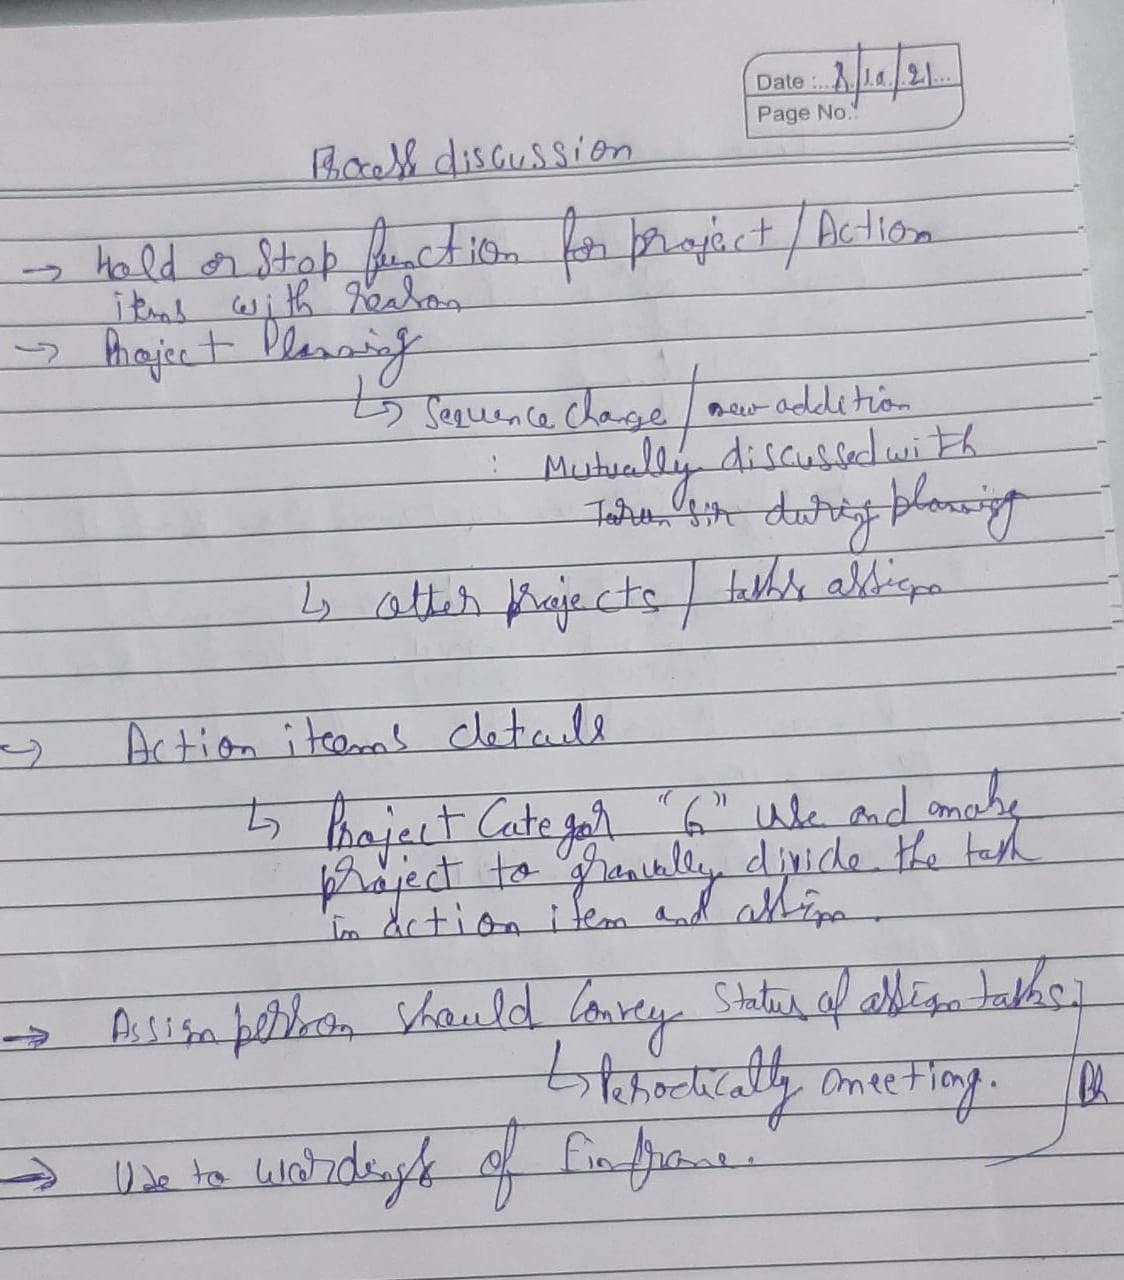 Date : 8/10/21
Page No.:
Process discussion
→ Hold or Stop function for project / Action
items with reason
→ Project Planning
↳ Sequence change / new addition
: Mutually discussed with
Tarun sir during planning
↳ other projects / tasks assign
→ Action iteams details
↳ Project Categor "G" use and make
project to granually divide the task
in action item and assign.
→ Assign person should convey status of assign tasks.
↳ Periodically meeting.
→ Use to wordings of